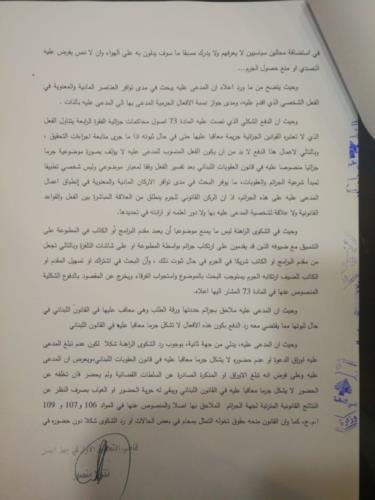 في استضافة محللين سياسيين لا يعرفهم ولا يدرك مسبقا ما سوف يدلون به على الهواء وان لا نص يفرض عليه
التصدي او منع حصول الجرم...
وحيث يتضح من ما ورد اعلاه ان المدعى عليه يبحث في مدى توافر العناصر المادية والمعنوية في
الفعل الشخصي الذي اقدم عليه، ومدى جواز نسبة الافعال الجرمية المدعى بها الى المدعى عليه بالذات .
وحيث ان الدفع الشكلي الذي نصت عليه المادة 73 اصول محاكمات جزائية الفقرة الرابعة يتناول الفعل
الذي لا تعتبره القوانين الجزائية جريمة معاقبا عليها حتى في حال ثبوته اذا ما جرى متابعة اجراءات التحقيق ،
وبالتالي لاعمال هذا الدفع لا بد من ان يكون الفعل المنسوب المدعى عليه لا يؤلف بصورة موضوعية جرما
جزائيا منصوصا عليه في قانون العقوبات اللبناني بعد تفسير الفعل وفقا لمعيار موضوعي وليس شخصي تطبيقا
لمبدأ شرعية الجرائم والعقوبات، ما يوفر البحث في مدى توافر الاركان المادية والمعنوية في إنطباق اعمال
المدعى عليه على هذه الجرائم، اذ ان الركن القانوني للجرم ينطلق من العلاقة المباشرة بين الفعل والقواعد
القانونية ولا علاقة لشخصية المدعى عليه بها ولا دور لعلمه او ارادته في تحديدها.
وحيث في الشكوى الراهنة ليس ما يمنع موضوعياً أن يعمد مقدم البرامج أو الكاتب في المطبوعة على
التنسيق مع ضيوفه الذين قد يقدمون على ارتكاب جرائم بواسطة المطبوعة او على شاشات التلفزة وبالتالي تجعل
من مقدم البرامج او الكاتب شريكا في الجرم في حال ثبوت ذلك ، وأن البحث في اشتراك او تسهيل المقدم او
الكاتب للضيف ارتكابه الجرم يستوجب البحث بالموضوع واستجواب الفرقاء ويخرج عن المقصود بالدفوع الشكلية
المنصوص عنها في المادة 73 المشار اليها اعلاه.
وحيث ان المدعى عليه ملاحق بجرائم حددتها ورقة الطلب وهي معاقب عليها في القانون اللبناني في
حال ثبوتها مما يقتضي معه رد الدفع بكون هذه الافعال لا تشكل جرما معاقبا عليه في القانون اللبناني
وحيث ان المدعى عليه، يدلي من جهة ثانية، بوجوب رد الشكوى الراهنة شكلا لكون عدم تبلغ المدعى
عليه اوراق الدعوة او عدم حضوره لا يشكل جرما معاقبا عليه في قانون العقوبات اللبناني،وبعرض ان المدعى
عليه وعلى فرض انه تبلغ الاوراق او المذكرة الصادرة عن السلطات القضائية ولم يحضر فان تخلفه عن
الحضور لا يشكل جرما معاقبا عليه في القانون اللبناني ويبقى له حرية الحضور او الغياب بصرف النظر عن
النتائج القانونية المترتبة لجهة الجرائم الملاحق بها اصلا والمنصوص عنها في المواد 106 و107 و 109
ا.م.ج، كما وان القانون منحه حقوق تخوله التمثل بمحام في بعض الحالات او رد الشكوى شكلا دون حضوره في